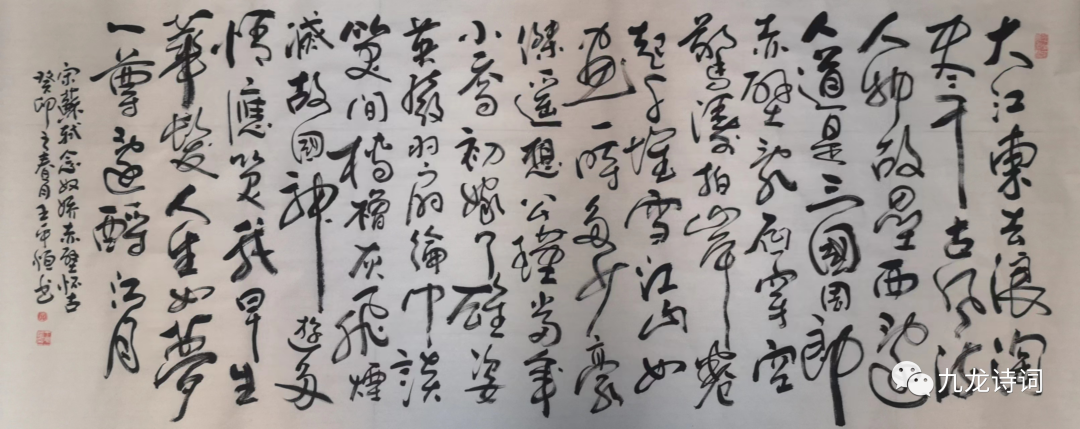 大江東去浪淘
尽千古風流
人物故壘西邊
人道是三國周郎
赤壁亂石穿空
驚濤拍岸捲
起千堆雪江山如
畫一時多少豪
傑遥想公瑾當年
小喬初嫁了雄姿
英發羽扇綸巾談
笑間檣櫓灰飛煙
滅故國神遊多
情應笑我早生
華髮人生如夢
一尊還酹江月
宋蘇軾念奴嬌赤壁怀古
癸卯之春月王恒书
九龙诗词